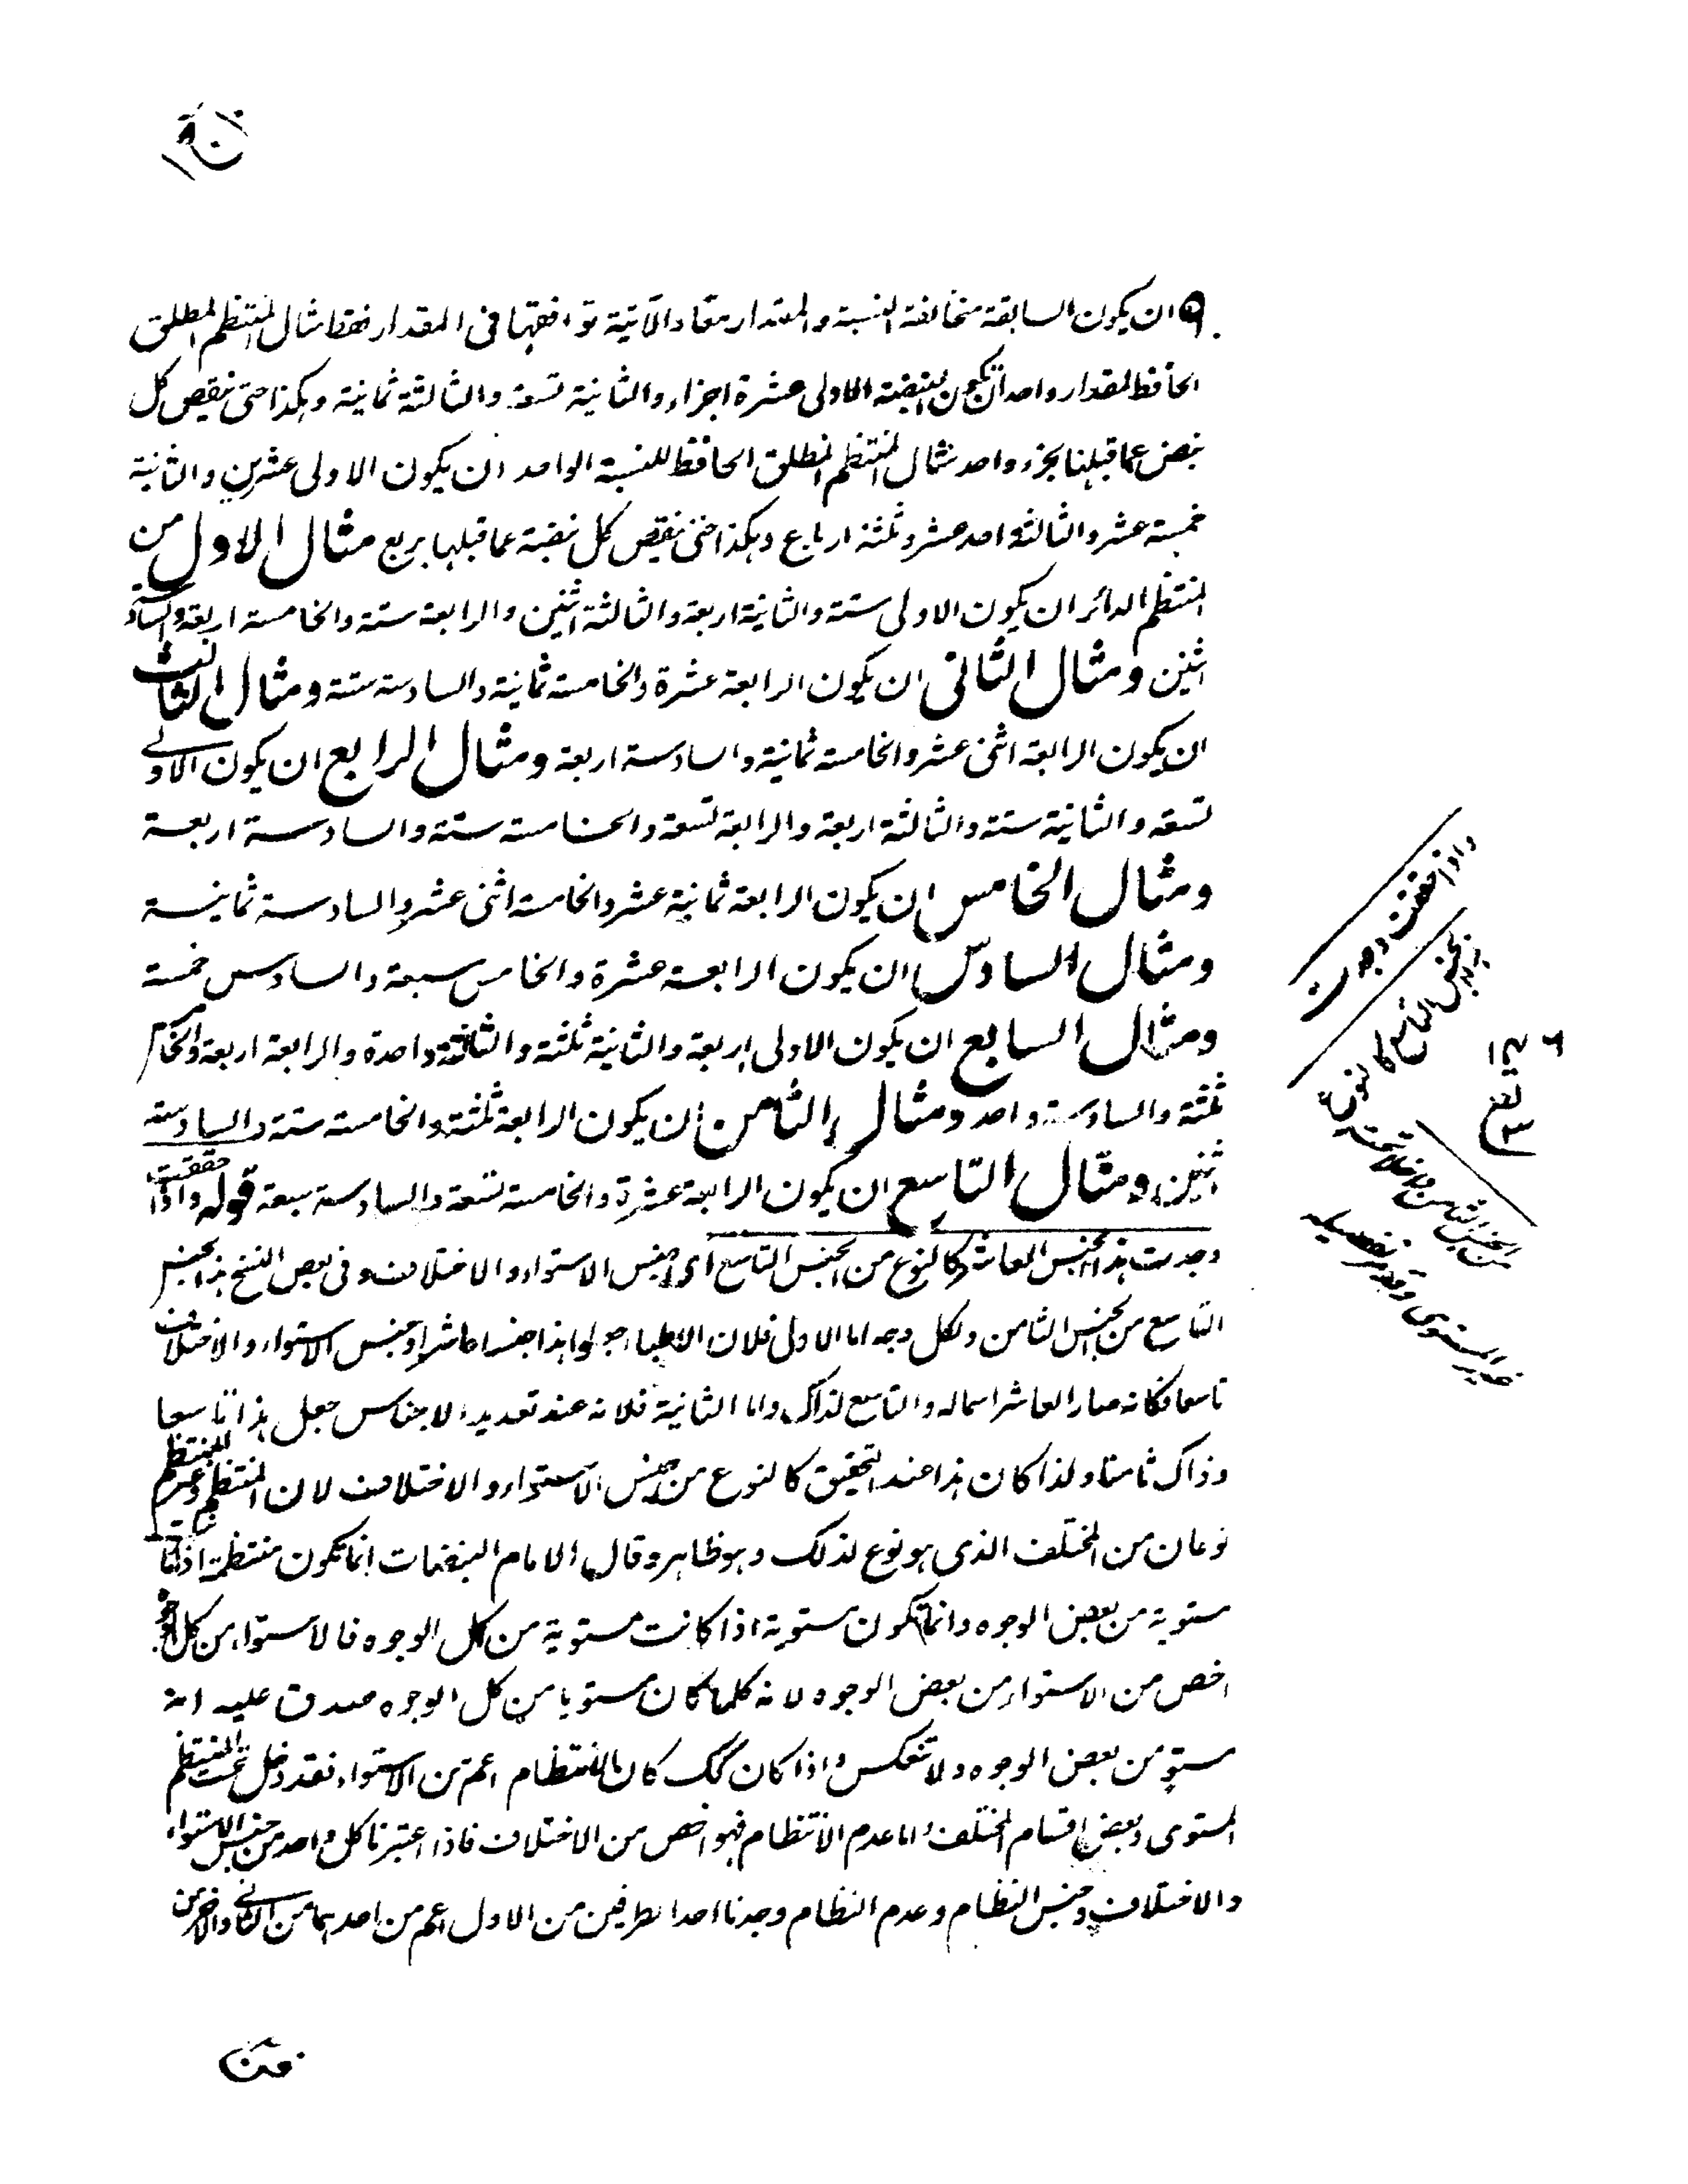 ٩ ان يكون السابقة مخالفة النسبة والمقدار معًا والآتية توافقها فى المقدار فقط مثال المنتظم المطلق
الحافظ لمقدار واحد ان يكون النبضة الاولى عشرة اجزاء والثانية تسعة والثالثة ثمانية وهكذا حتى ينقص كل
نبض عما قبلها بجزء واحد مثال المنتظم المطلق الحافظ للنسبة الواحد ان يكون الاولى عشرين والثانية
خمسة عشر والثالثة احد عشر وثلثة ارباع وهكذا حتى ينقص كل نبضة عما قبلها بربع مثال الاول من
المنتظم الدائر ان يكون الاولى ستة والثانية اربعة والثالثة اثنين والرابعة ستة والخامسة اربعة والسادسة
اثنين ومثال الثانى ان يكون الرابعة عشرة والخامسة ثمانية والسادسة ستة ومثال الثالث
ان يكون الرابعة اثنى عشر والخامسة ثمانية والسادسة اربعة ومثال الرابع ان يكون الاولى
تسعة والثانية ستة والثالثة اربعة والرابعة تسعة والخامسة ستة والسادسة اربعة
ومثال الخامس ان يكون الرابعة ثمانية عشر والخامسة اثنى عشر والسادسة ثمانية
ومثال السادس ان يكون الرابعة عشرة والخامس سبعة والسادس خمسة
ومثال السابع ان يكون الاولى اربعة والثانية ثلثة والثالثة واحدة والرابعة اربعة والخامسة
ثلثة والسادسة واحد ومثال الثامن ان يكون الرابعة ثلثة والخامسة ستة والسادسة
اثنين ومثال التاسع ان يكون الرابعة عشرة والخامسة تسعة والسادسة سبعة قوله واذا حققت
وجدت هذا الجنس العاشر كالنوع من الجنس التاسع اى جنس الاستواء والاختلاف وفى بعض النسخ هذا الجنس
التاسع من الجنس الثامن ولكل وجه اما الاولى فلان الاطباء جعلوا هذا جنسا عاشرا وجنس الاستواء والاختلاف
تاسعا فكانه صار العاشر اسما له والتاسع لذاك واما الثانية فلانه عند تعديد الاجناس جعل هذا تاسعا
وذاك ثامنا ولذا كان هذا عند التحقيق كالنوع من جنس الاستواء والاختلاف لان المنتظم وغير المنتظم
نوعان من المختلف الذى هو نوع لذلك وهو ظاهر وقال الامام النبضات انما تكون منتظمة اذا كانت
مستوية من بعض الوجوه وانما تكون مستوية اذا كانت مستوية من كل الوجوه فالاستواء من كل الوجوه
اخص من الاستواء من بعض الوجوه لانه كلما كان مستويا من كل الوجوه صدق عليه انه
مستو من بعض الوجوه ولا تنعكس واذا كان كك كان الانتظام اعم من الاستواء فقد دخل تحت المنتظم
المستوى وبعض اقسام المختلف واما عدم الانتظام فهو اخص من الاختلاف فاذا اعتبرنا كل واحد من جنس الاستواء
والاختلاف وجنس النظام وعدم النظام وجدنا احد الطرفين من الاول اعم من احدهما من الثانى والاخر من
واذا حققت وجدت
هذا الجنس التاسع كالنوع
من الجنس الثامن
غير المستوى وقد تفصيله